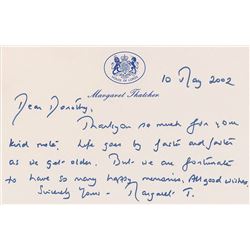 HOUSE OF LORDS
10 May 2002
Margaret Thatcher
Dear Dorothy,
Thank you so much for your
kind note. Life goes by faster and faster
as we get older. But we are fortunate
to have so many happy memories. All good wishes.
Sincerely Yours - Margaret T.